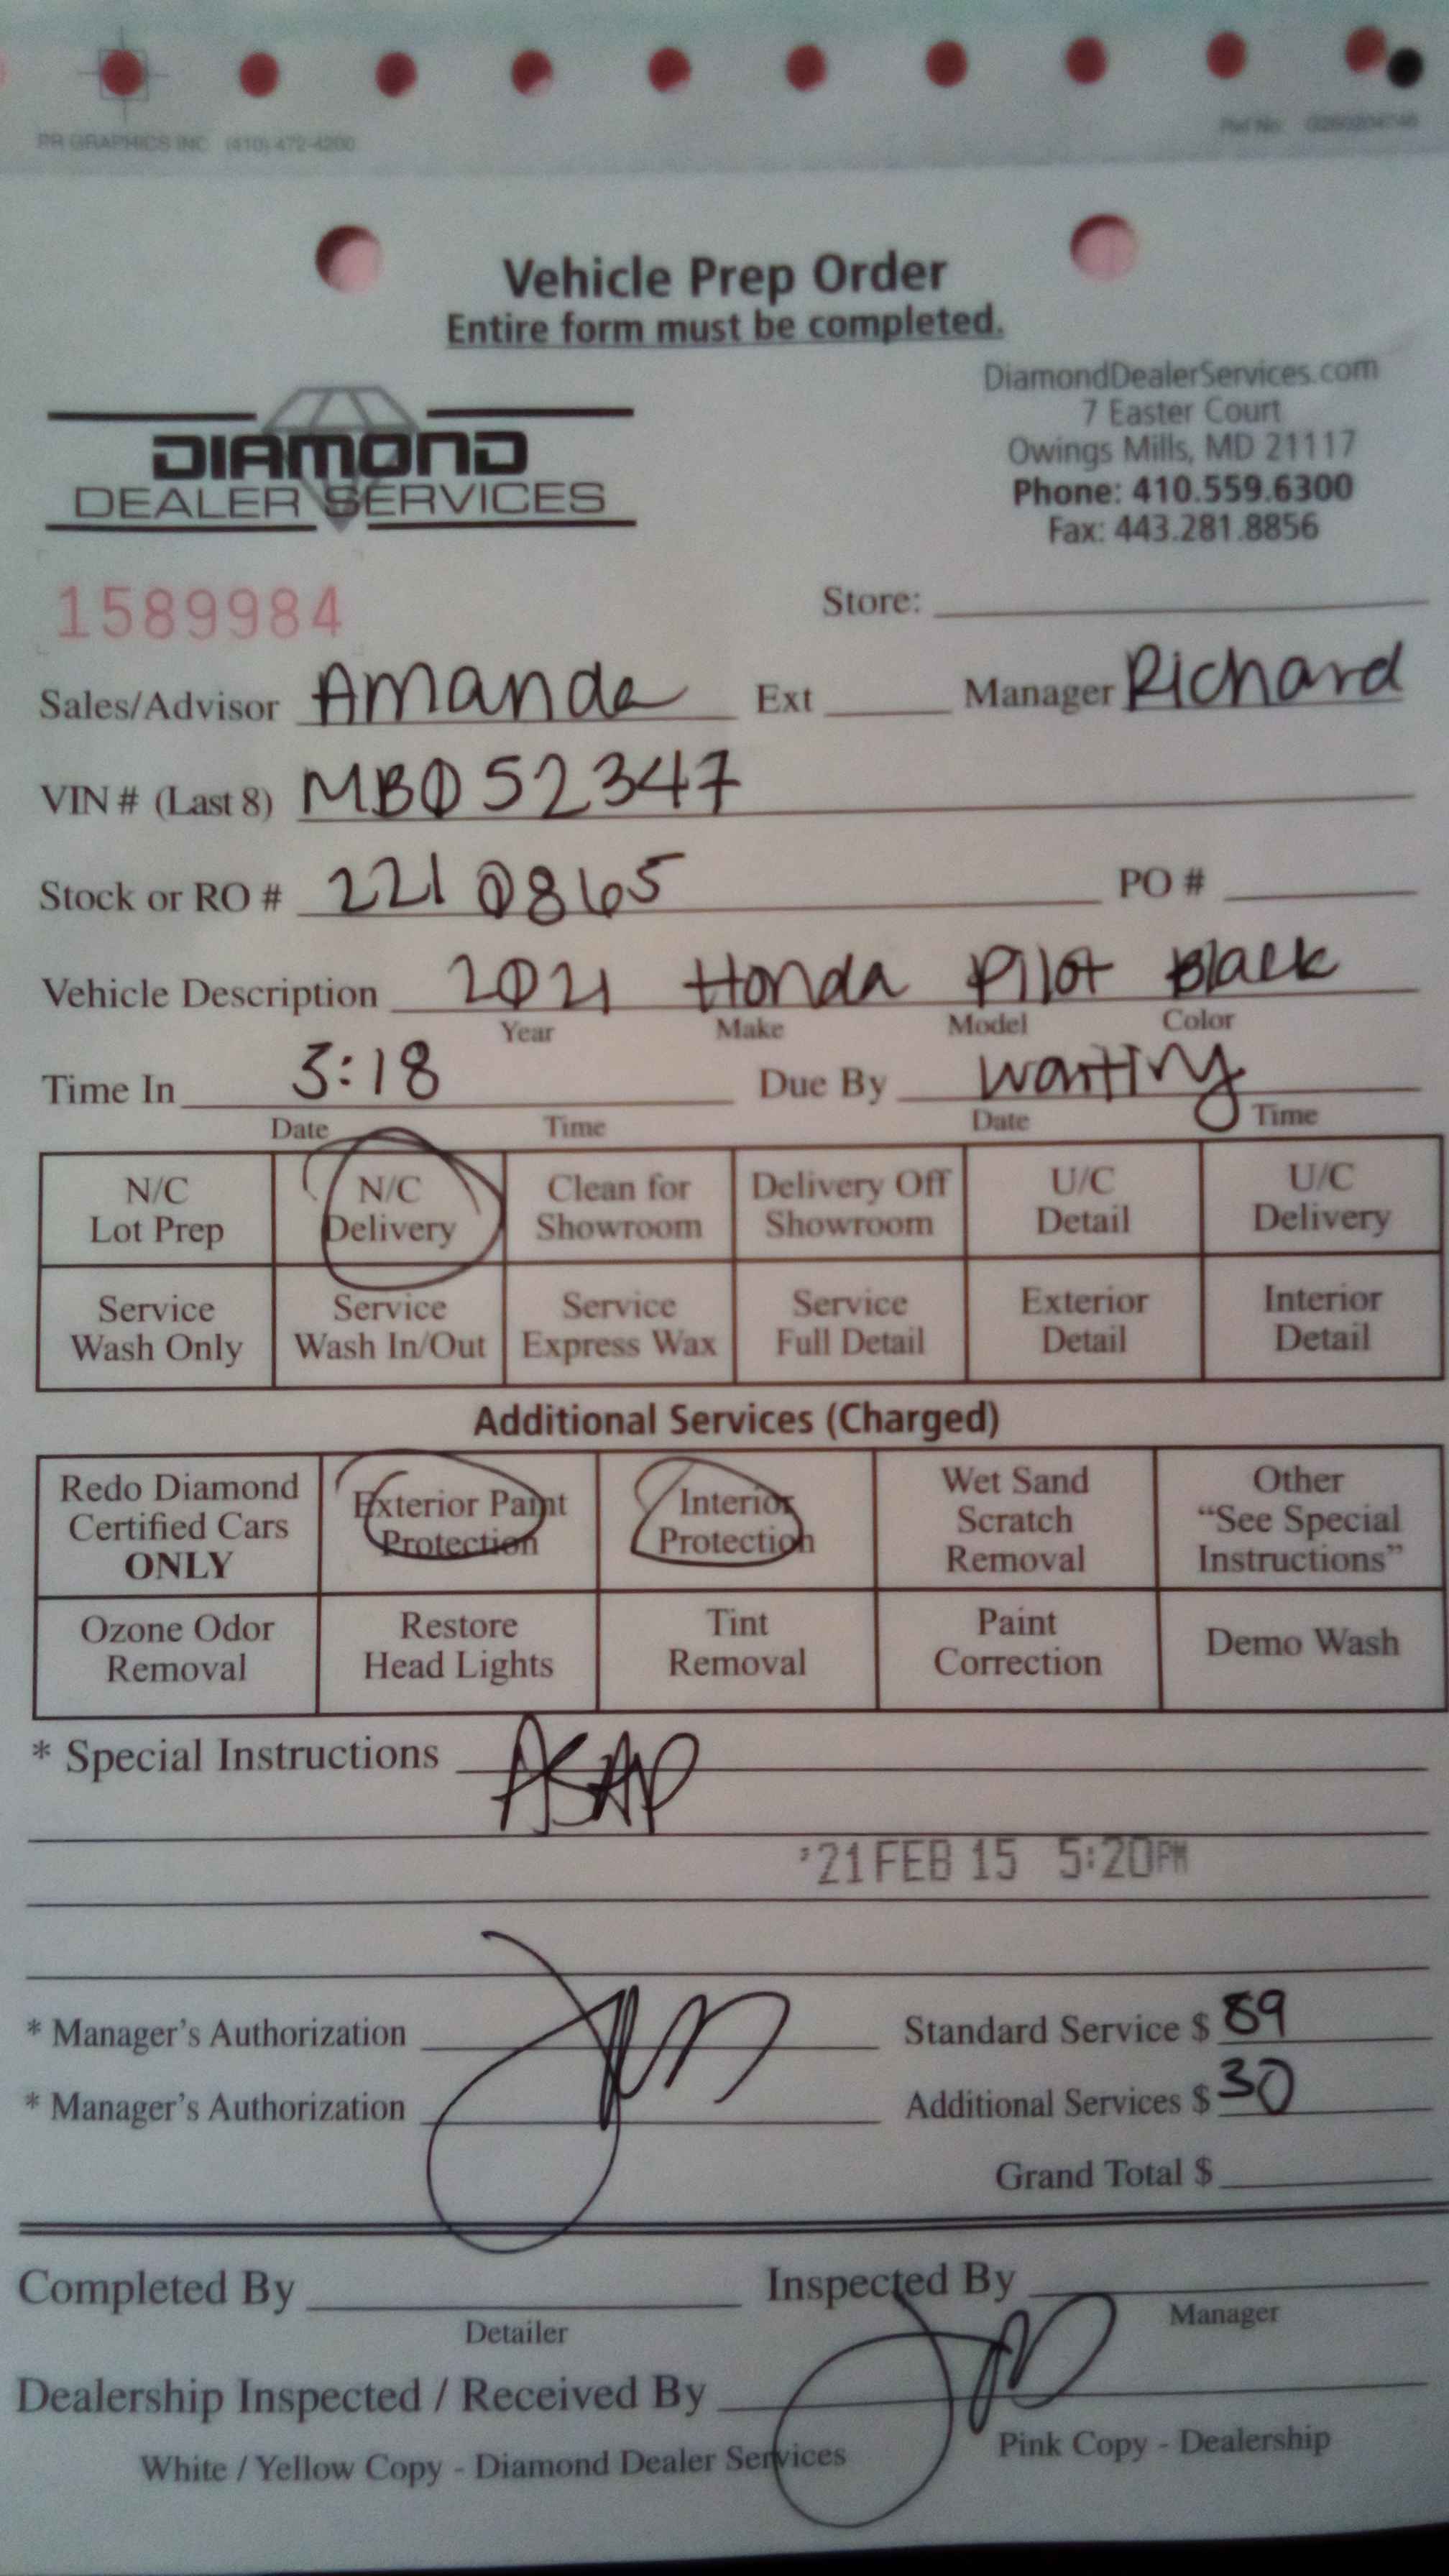 PR GRAPHICS INC (410) 472-4200
Ref No
Vehicle Prep Order
Entire form must be completed.
DIAMOND
DEALER SERVICES
DiamondDealerServices.com
7 Easter Court
Owings Mills, MD 21117
Phone: 410.559.6300
Fax: 443.281.8856
1589984
Store:
Sales/Advisor Amanda Ext Manager Richard
VIN # (Last 8) MB052347
Stock or RO # 2210865 PO #
Vehicle Description 2021 Honda Pilot Black
Year Make Model Color
Time In 3:18 Due By waiting
Date Time Date Time
N/C Lot Prep
N/C Delivery
Clean for Showroom
Delivery Off Showroom
U/C Detail
U/C Delivery
Service Wash Only
Service Wash In/Out
Service Express Wax
Service Full Detail
Exterior Detail
Interior Detail
Additional Services (Charged)
Redo Diamond Certified Cars ONLY
Exterior Paint Protection
Interior Protection
Wet Sand Scratch Removal
Other "See Special Instructions"
Ozone Odor Removal
Restore Head Lights
Tint Removal
Paint Correction
Demo Wash
* Special Instructions ASAP
'21 FEB 15 5:20PM
* Manager's Authorization Standard Service $ 89
* Manager's Authorization Additional Services $ 30
Grand Total $
Completed By Inspected By
Detailer Manager
Dealership Inspected / Received By
White / Yellow Copy - Diamond Dealer Services Pink Copy - Dealership